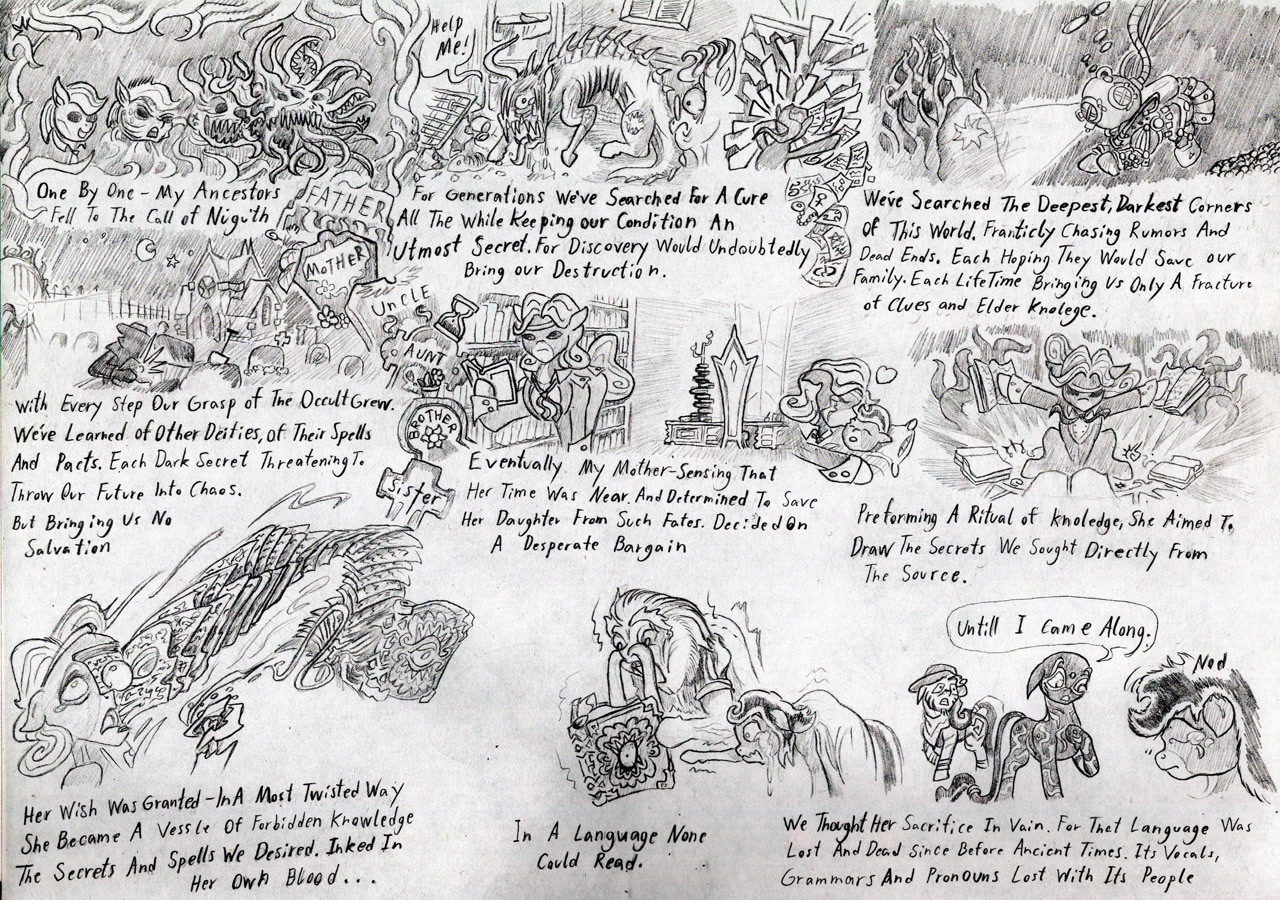 Help
Me!
One By One - My Ancestors
Fell To The Call of Niguth
For Generations We've Searched For A Cure
All The While Keeping our Condition An
Utmost Secret. For Discovery Would Undoubtedly
Bring our Destruction.
We've Searched The Deepest, Darkest Corners
of This World. Franticly Chasing Rumors And
Dead Ends. Each Hoping They Would Save our
Family. Each LifeTime Bringing Us Only A Fracture
of Clues and Elder Knolege.
FATHER
MOTHER
UNCLE
AUNT
BROTHER
Sister
With Every Step Our Grasp of The Occult Grew.
We've Learned of Other Deities, of Their Spells
And Pacts. Each Dark Secret Threatening To
Throw Our Future Into Chaos.
But Bringing Us No
Salvation
Eventually My Mother-Sensing That
Her Time Was Near. And Determined To Save
Her Daughter From Such Fates. Decided On
A Desperate Bargain
Preforming A Ritual of Knoledge, She Aimed To
Draw The Secrets We Sought Directly From
The Source.
Her Wish Was Granted - In A Most Twisted Way
She Became A Vessle Of Forbidden Knowledge
The Secrets And Spells We Desired. Inked In
Her Own Blood...
In A Language None
Could Read.
Untill I Came Along.
Nod
We Thought Her Sacrifice In Vain. For That Language Was
Lost And Dead Since Before Ancient Times. Its Vocals,
Grammars And Pronouns Lost With Its People